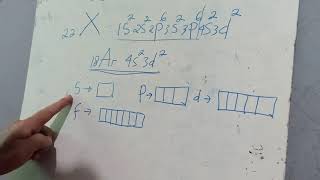 ₂₂X 1s²2s²2p⁶3s²3p⁶4s²3d²
₁₈Ar 4s²3d²
s → p → d →
f →